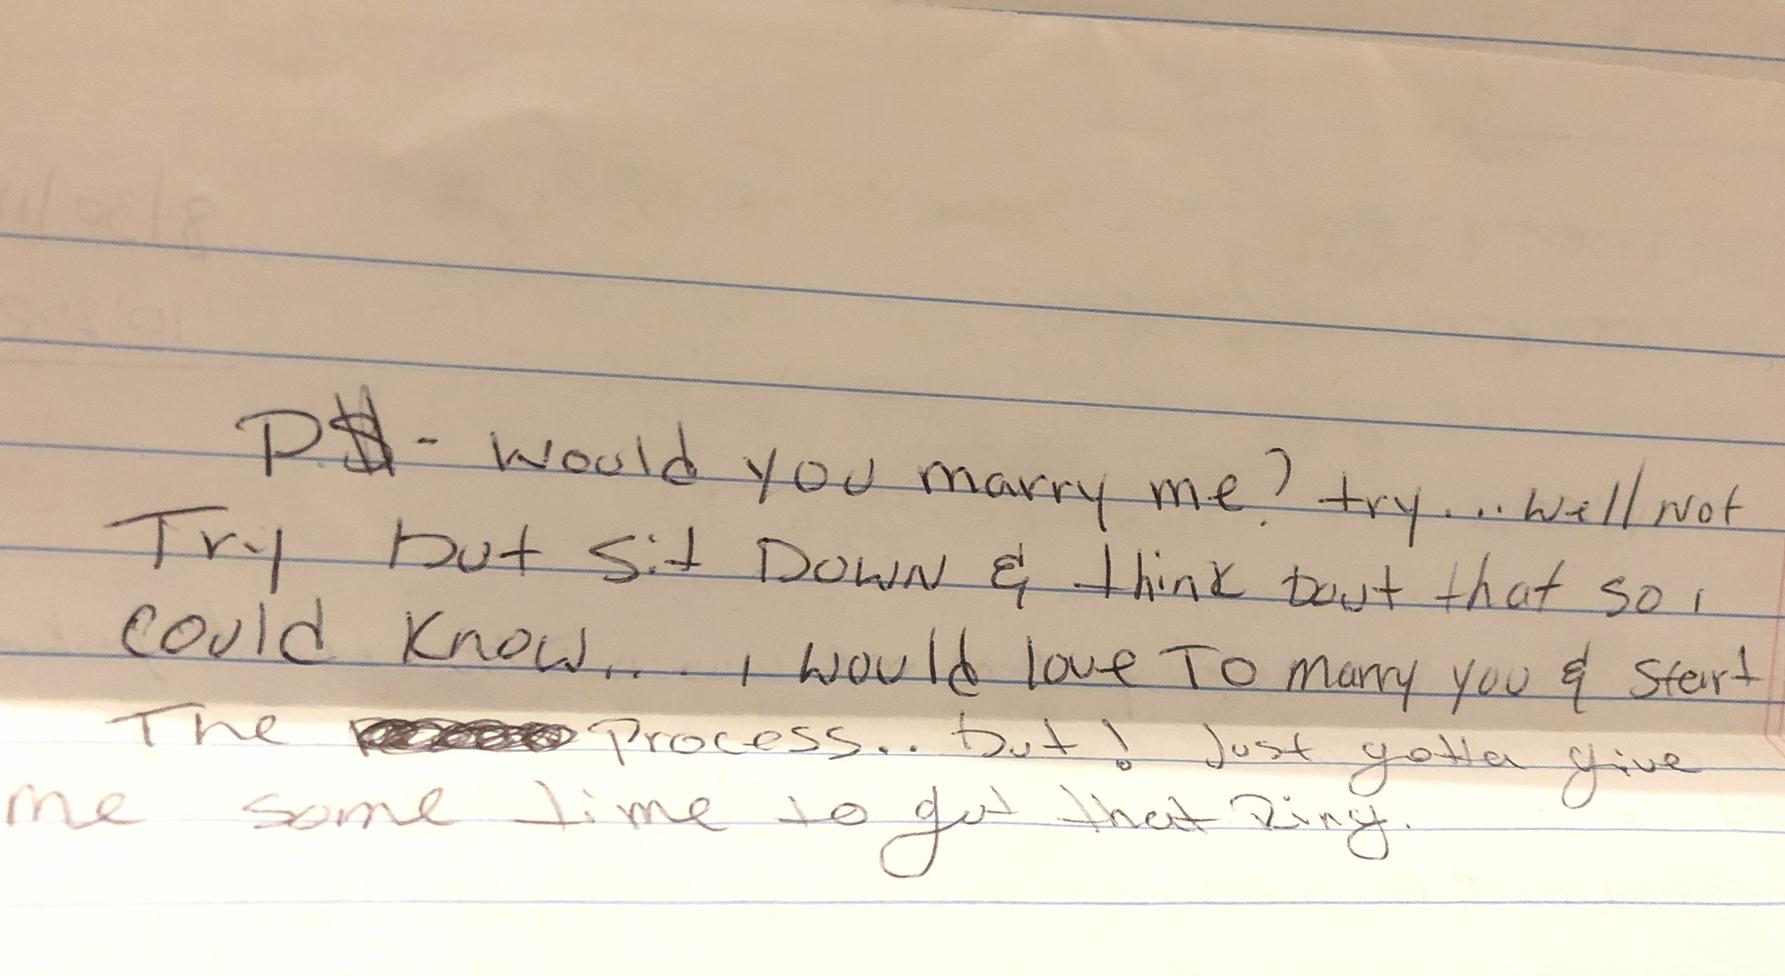 P$- would you marry me? try... well Not
Try but sit DOWN & think bout that so i
could know... i would love To marry you & start
The process.. but! Just gotta give
me some time to get that Ring.